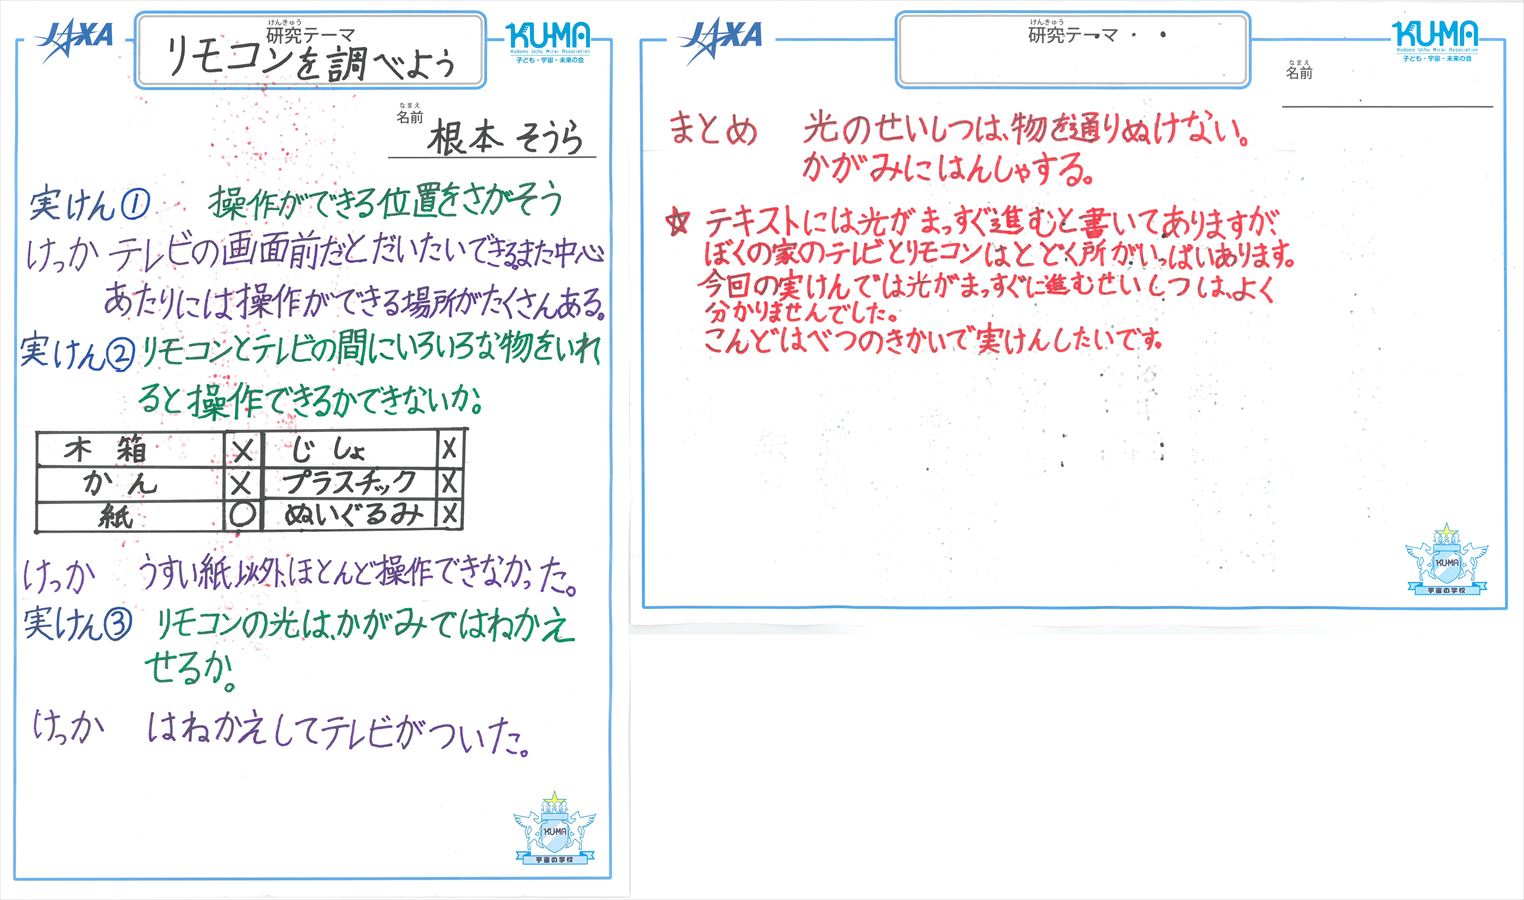 JAXA
けんきゅう
研究テーマ
リモコンを調べよう
KU-MA
Kodomo Uchu Mirai Association
子ども・宇宙・未来の会
なまえ
名前
根本 そうら
実けん① 操作ができる位置をさがそう
けっか テレビの画面前だとだいたいできる。また中心
あたりには操作ができる場所がたくさんある。
実けん② リモコンとテレビの間にいろいろな物をいれ
ると操作できるかできないか。
木箱 × じしょ ×
かん × プラスチック ×
紙 ○ ぬいぐるみ ×
けっか うすい紙以外、ほとんど操作できなかった。
実けん③ リモコンの光は、かがみではねかえ
せるか。
けっか はねかえしてテレビがついた。
KU-MA
宇宙の学校
JAXA
けんきゅう
研究テーマ
KU-MA
Kodomo Uchu Mirai Association
子ども・宇宙・未来の会
なまえ
名前
まとめ 光のせいしつは、物を通りぬけない。
かがみにはんしゃする。
☆ テキストには光がまっすぐ進むと書いてありますが、
ぼくの家のテレビとリモコンはとどく所がいっぱいあります。
今回の実けんでは光がまっすぐに進むせいしつは、よく
分かりませんでした。
こんどはべつのきかいで実けんしたいです。
KU-MA
宇宙の学校